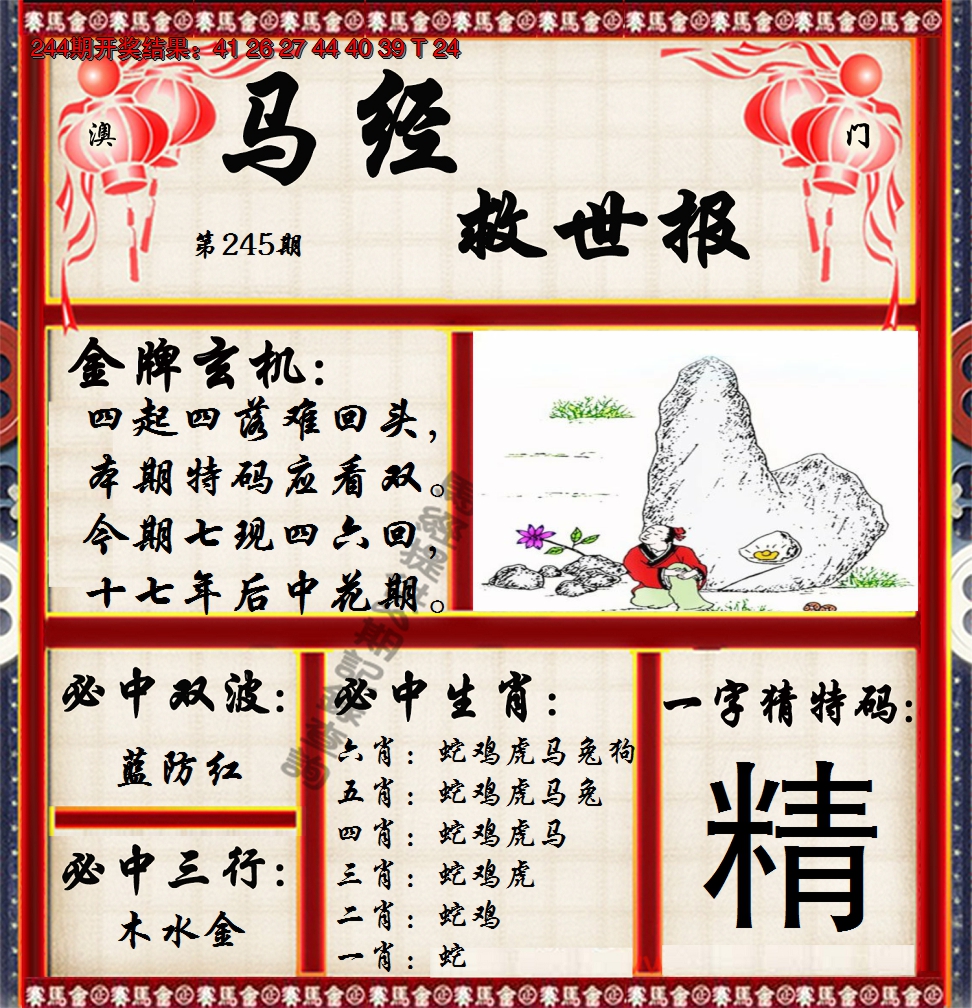 賽馬會
244期开奖结果：41 26 27 44 40 39 T 24
澳
门
马经
救世报
第245期
金牌玄机：
四起四落难回头，
本期特码应看双。
今期七现四六回，
十七年后中花期。
必中双波：
蓝防红
必中三行：
木水金
必中生肖：
六肖：蛇鸡虎马兔狗
五肖：蛇鸡虎马兔
四肖：蛇鸡虎马
三肖：蛇鸡虎
二肖：蛇鸡
一肖：蛇
一字猜特码：
精